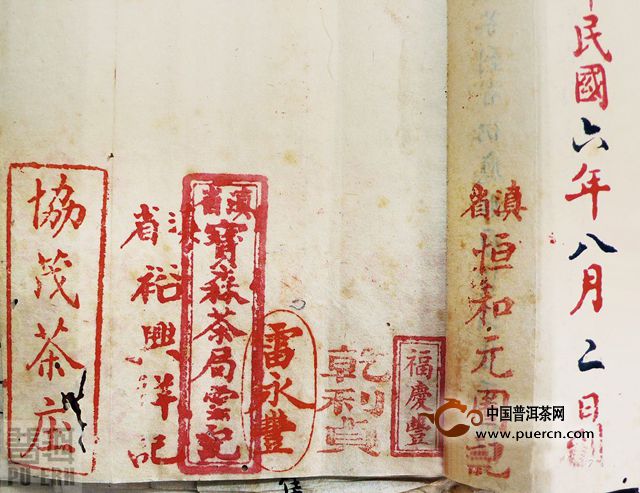 民國六年八月二日
滇省
恒和元
福慶豐
乾利貞
雷永豐
滇省
寶森茶局雲記
滇省
裕興祥記
協茂茶庄
中国普洱茶网
www.puercn.com